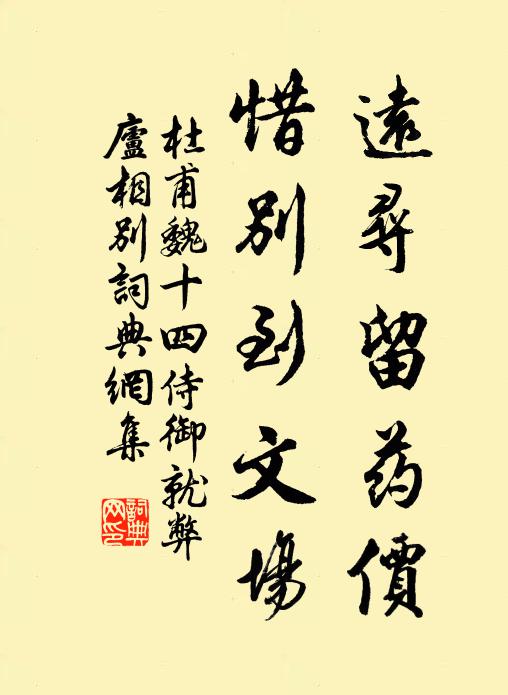 遠尋留药價
惜別到文場
杜甫魏十四侍御就弊
廬相別詞典網集
詞典网印